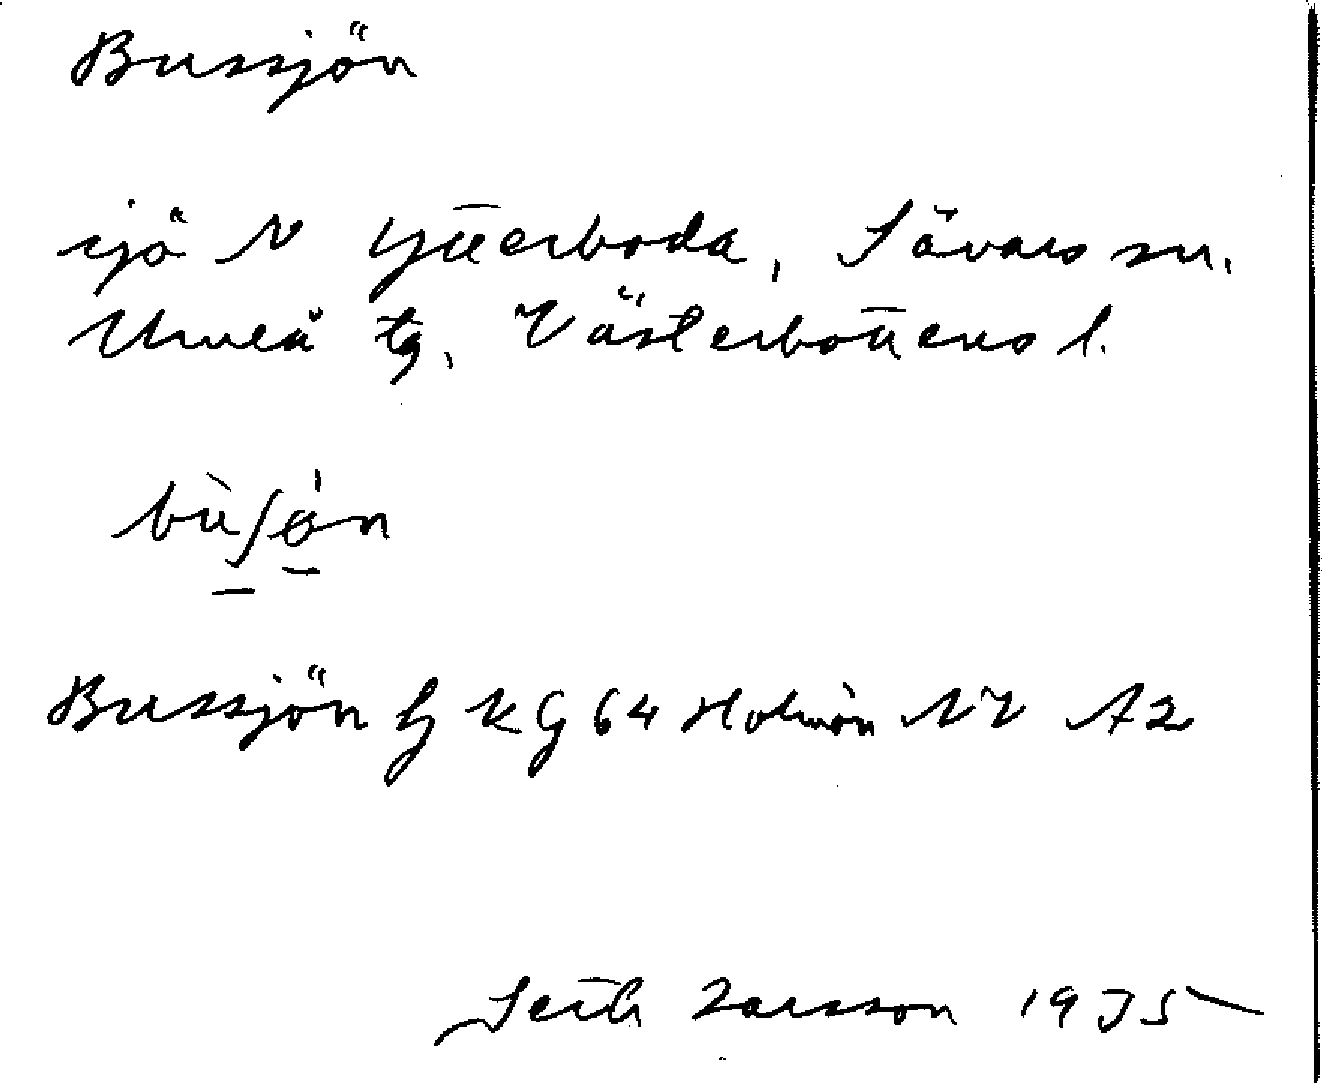 Bussjön
sjö N Ytterboda, Sävars sn.
Umeå tg, Västerbottens l.
bùʃǿn
Bussjön Gj KG 64 Holmön NV A2
Seth Larsson 1975